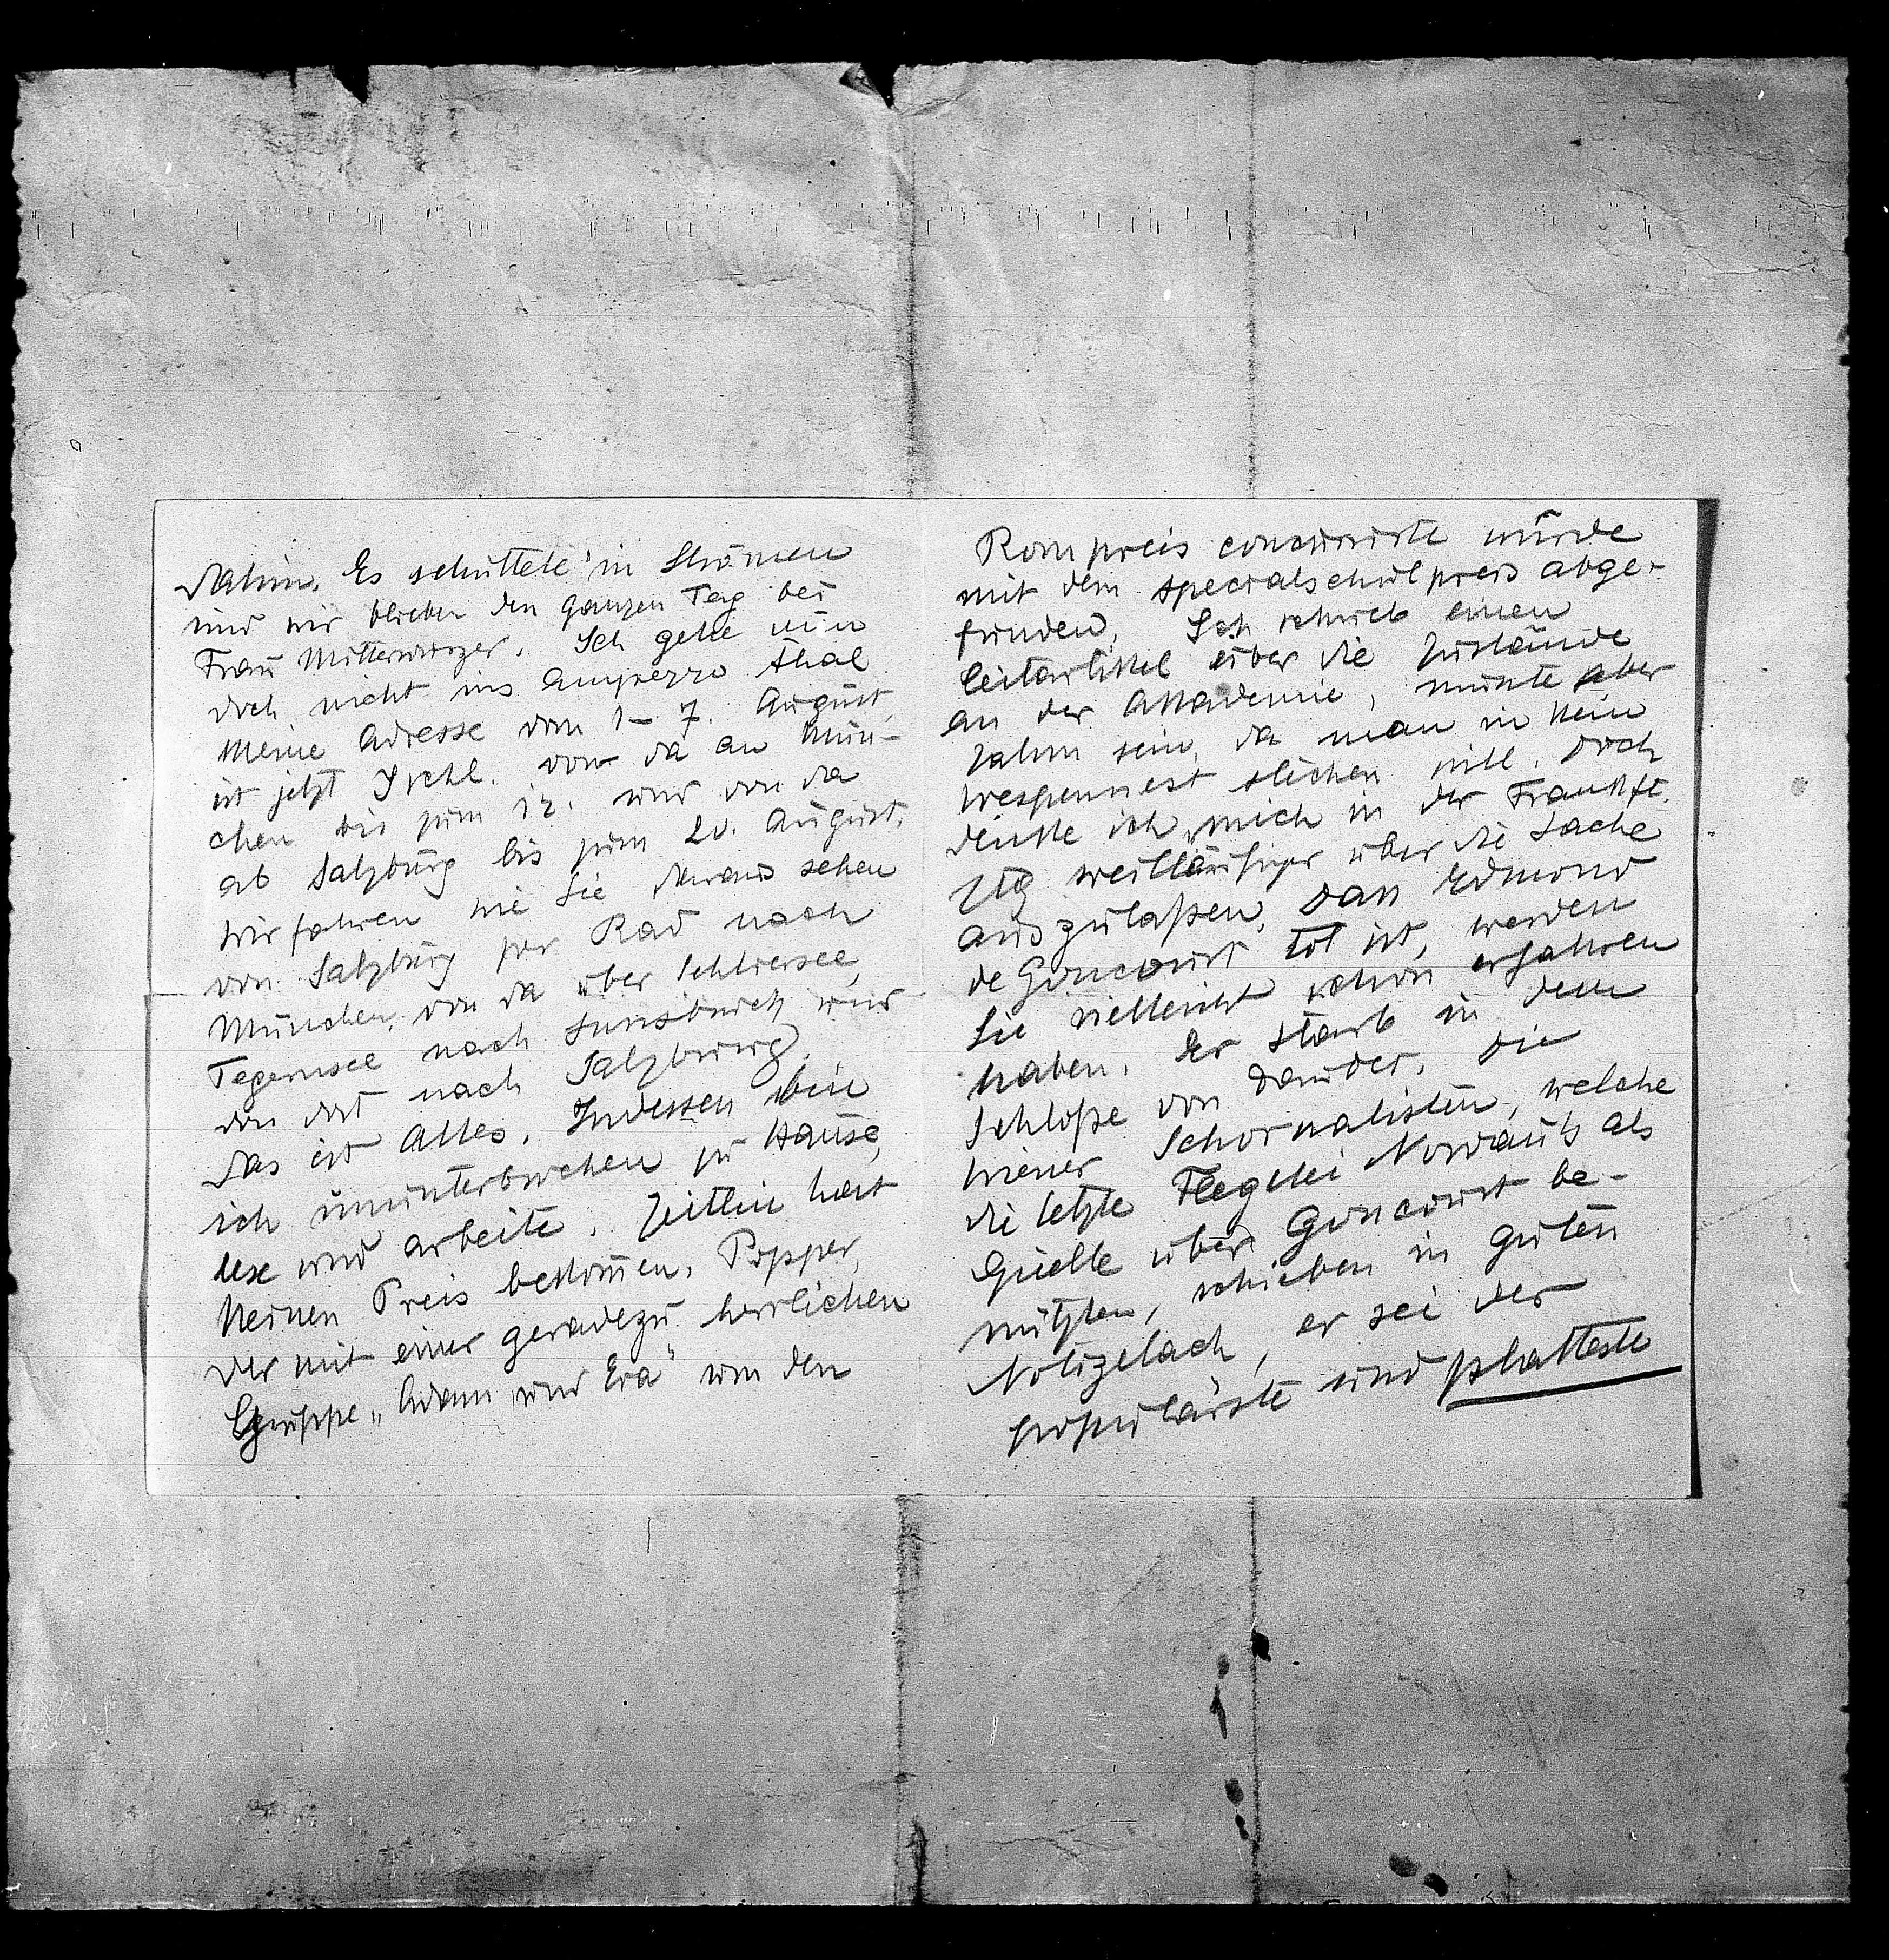 dahin. Es schüttete in Strömen
und wir blieben den ganzen Tag bei
Frau Mitterwurzer. Ich gehe nun
doch nicht ins Ampezzo thal
Meine Adresse vom 1– 7. August
ist jetzt Ischl. von da an Mün-
chen bis zum 12. und von da
ab Salzburg bis zum 20. August.
Wir fahren wie Sie daraus sehen
von Salzburg per Rad nach
München, von da über Schliersee,
Tegernsee nach Innsbruck und
von dort nach Salzburg.
Das ist Alles. Indessen bin
ich ununterbrochen zu Hause,
lese und arbeite. Zeitlin hat
keinen Preis bekommen. Popper,
der mit einer geradezu herrlichen
Gruppe „Adam und Eva“ um den
Rompreis concurrirte wurde
mit dem Specialschulpreis abge-
funden. Ich schrieb einen
Leitartikel über die Zustände
an der Akademie, musste aber
zahm sein, da man in kein
Wespennest stechen will. Doch
denke ich mich in der Frankft.
Ztg weitläufiger über die Sache
auszulaßen. Dass Edmond
de Goncourt tot ist, werden
Sie vielleicht schon erfahren
haben. Er starb in dem
Schloße von Daudet. Die
Wiener Schornalisten, welche
die letzte Flegelei Nordau's als
Quelle über Goncourt be-
nützten, schieben in guten
Notizelach, er sei der
populärste und platteste